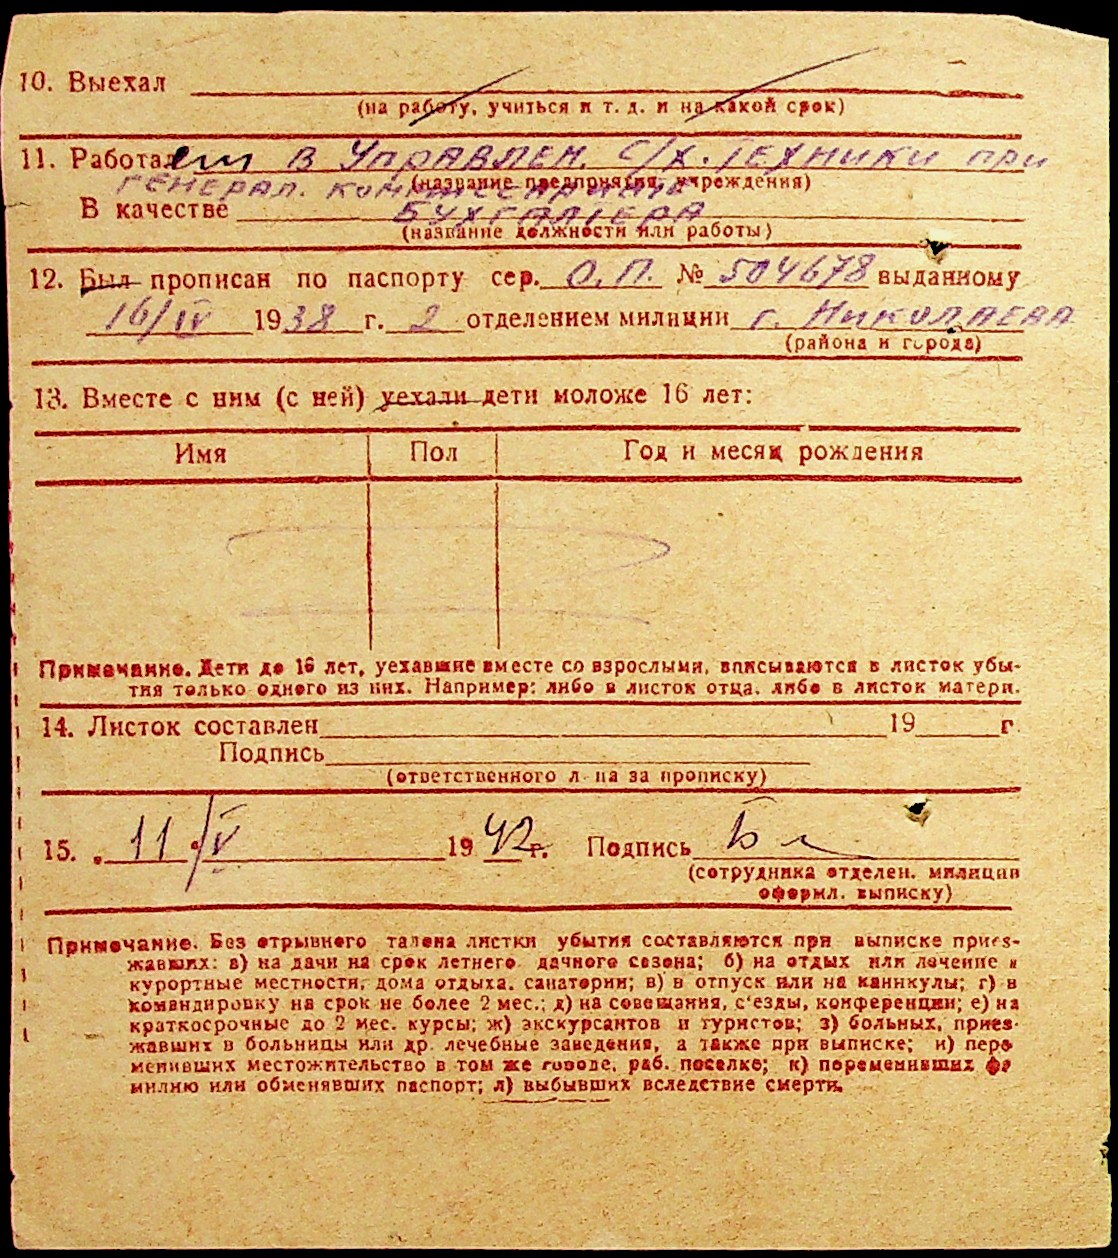 10. Выехал
(на работу, учиться и т. д. и на какой срок)
11. Работает в Управлен. с/х. техники при
Генерал. комиссариате
(название предприятия, учреждения)
В качестве бухгалтера
(название должности или работы)
12. Был прописан по паспорту сер. О.П. № 504678 выданному
16/IV 1938 г. 2 отделением милиции г. Николаева
(района и города)
13. Вместе с ним (с ней) уехали дети моложе 16 лет:
Имя Пол Год и месяц рождения
Примечание. Дети до 16 лет, уехавшие вместе со взрослыми, вписываются в листок убы-
тия только одного из них. Например: либо в листок отца, либо в листок матери.
14. Листок составлен 19 г
Подпись
(ответственного л на за прописку)
15. 11/V 1942 г. Подпись
(сотрудника отделен. милиции
оформл. выписку)
Примечание. Без отрывного талона листки убытия составляются при выписке приез-
жавших: в) на дачи на срок летнего дачного сезона; б) на отдых или лечение и
курортные местности, дома отдыха, санатории; в) в отпуск или на каникулы; г) в
командировку на срок не более 2 мес.; д) на совещания, с'езды, конференции; е) на
краткосрочные до 2 мес. курсы; ж) экскурсантов и туристов; з) больных, приез-
жавших в больницы или др. лечебные заведения, а также при выписке; и) пере
менивших местожительство в том же городе, раб. поселке; к) переменивших фа
милию или обменявших паспорт; л) выбывших вследствие смерти.